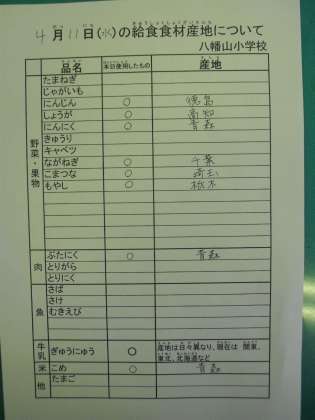 4月11日(水)の給食食材産地について
八幡山小学校
品名 本日使用したもの 産地
野菜・果物
たまねぎ
じゃがいも
にんじん ○ 徳島
しょうが ○ 高知
にんにく ○ 青森
きゅうり
キャベツ
ながねぎ ○ 千葉
こまつな ○ 埼玉
もやし ○ 栃木
肉
ぶたにく ○ 青森
とりがら
とりにく
魚
さば
さけ
むきえび
牛乳 ぎゅうにゅう ○ 産地は日々異なり、現在は 関東、
東北、北海道など
米 こめ ○ 青森
他 たまご